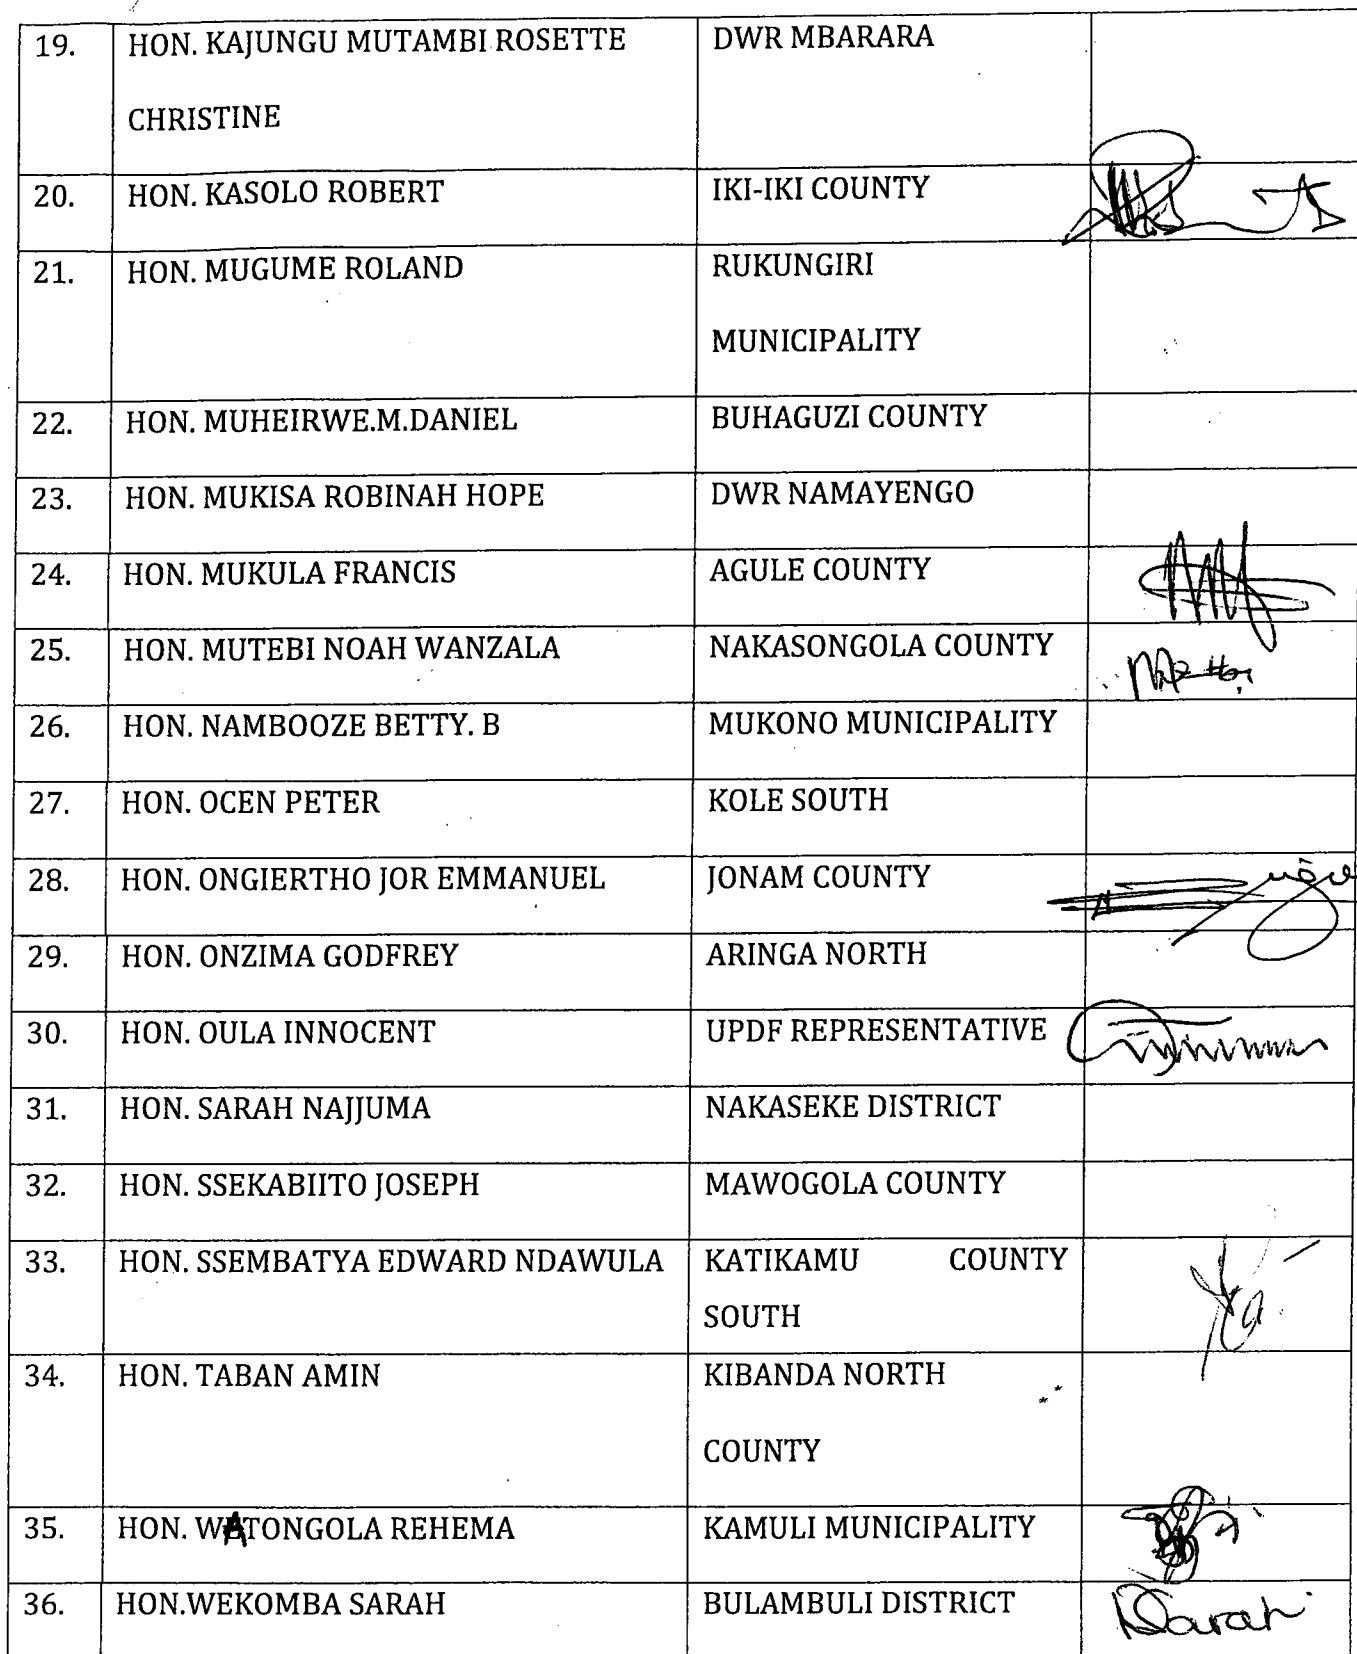 19. HON. KAJUNGU MUTAMBI ROSETTE DWR MBARARA
CHRISTINE
20. HON. KASOLO ROBERT IKI-IKI COUNTY
21. HON. MUGUME ROLAND RUKUNGIRI
MUNICIPALITY
22. HON. MUHEIRWE.M.DANIEL BUHAGUZI COUNTY
23. HON. MUKISA ROBINAH HOPE DWR NAMAYENGO
24. HON. MUKULA FRANCIS AGULE COUNTY
25. HON. MUTEBI NOAH WANZALA NAKASONGOLA COUNTY
26. HON. NAMBOOZE BETTY. B MUKONO MUNICIPALITY
27. HON. OCEN PETER KOLE SOUTH
28. HON. ONGIERTHO JOR EMMANUEL JONAM COUNTY
29. HON. ONZIMA GODFREY ARINGA NORTH
30. HON. OULA INNOCENT UPDF REPRESENTATIVE
31. HON. SARAH NAJJUMA NAKASEKE DISTRICT
32. HON. SSEKABIITO JOSEPH MAWOGOLA COUNTY
33. HON. SSEMBATYA EDWARD NDAWULA KATIKAMU COUNTY
SOUTH
34. HON. TABAN AMIN KIBANDA NORTH
COUNTY
35. HON. WATONGOLA REHEMA KAMULI MUNICIPALITY
36. HON.WEKOMBA SARAH BULAMBULI DISTRICT Sarah